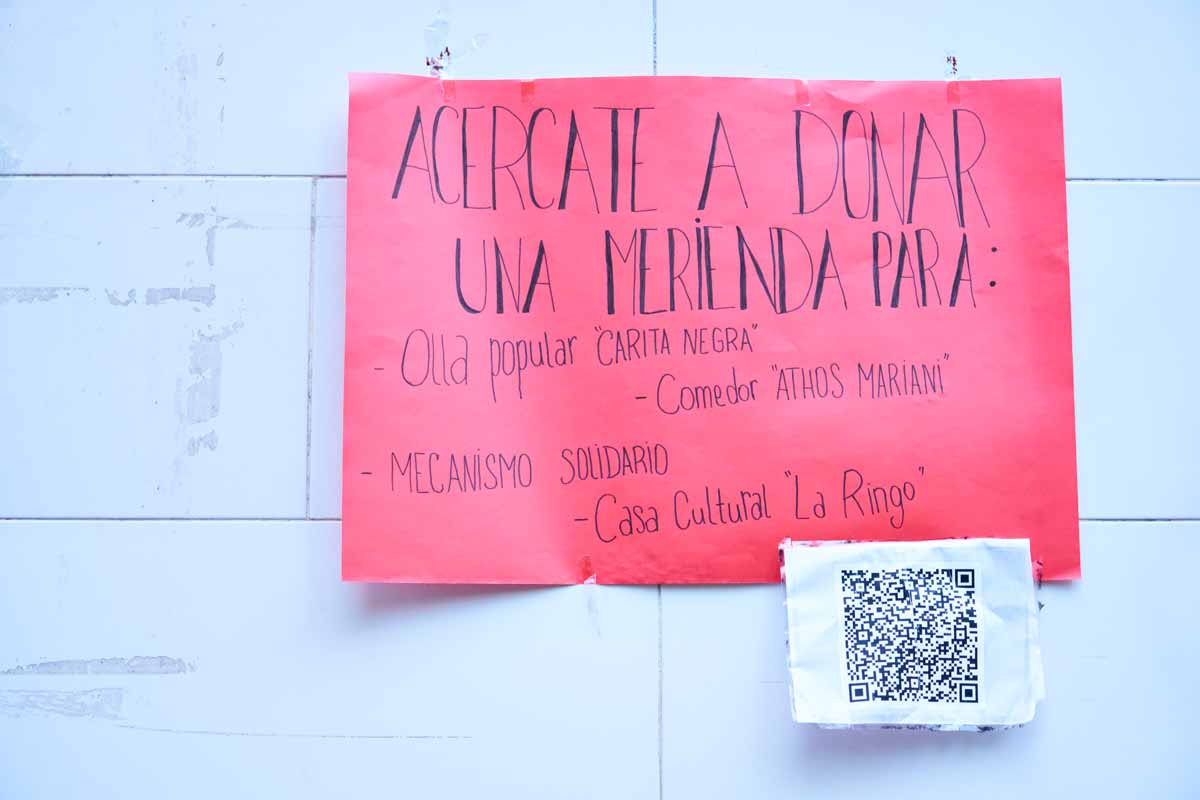 ACERCATE A DONAR
UNA MERIENDA PARA:
- Olla popular "CARITA NEGRA"
- Comedor "ATHOS MARIANI"
- MECANISMO SOLIDARIO
- Casa Cultural "La Ringo"